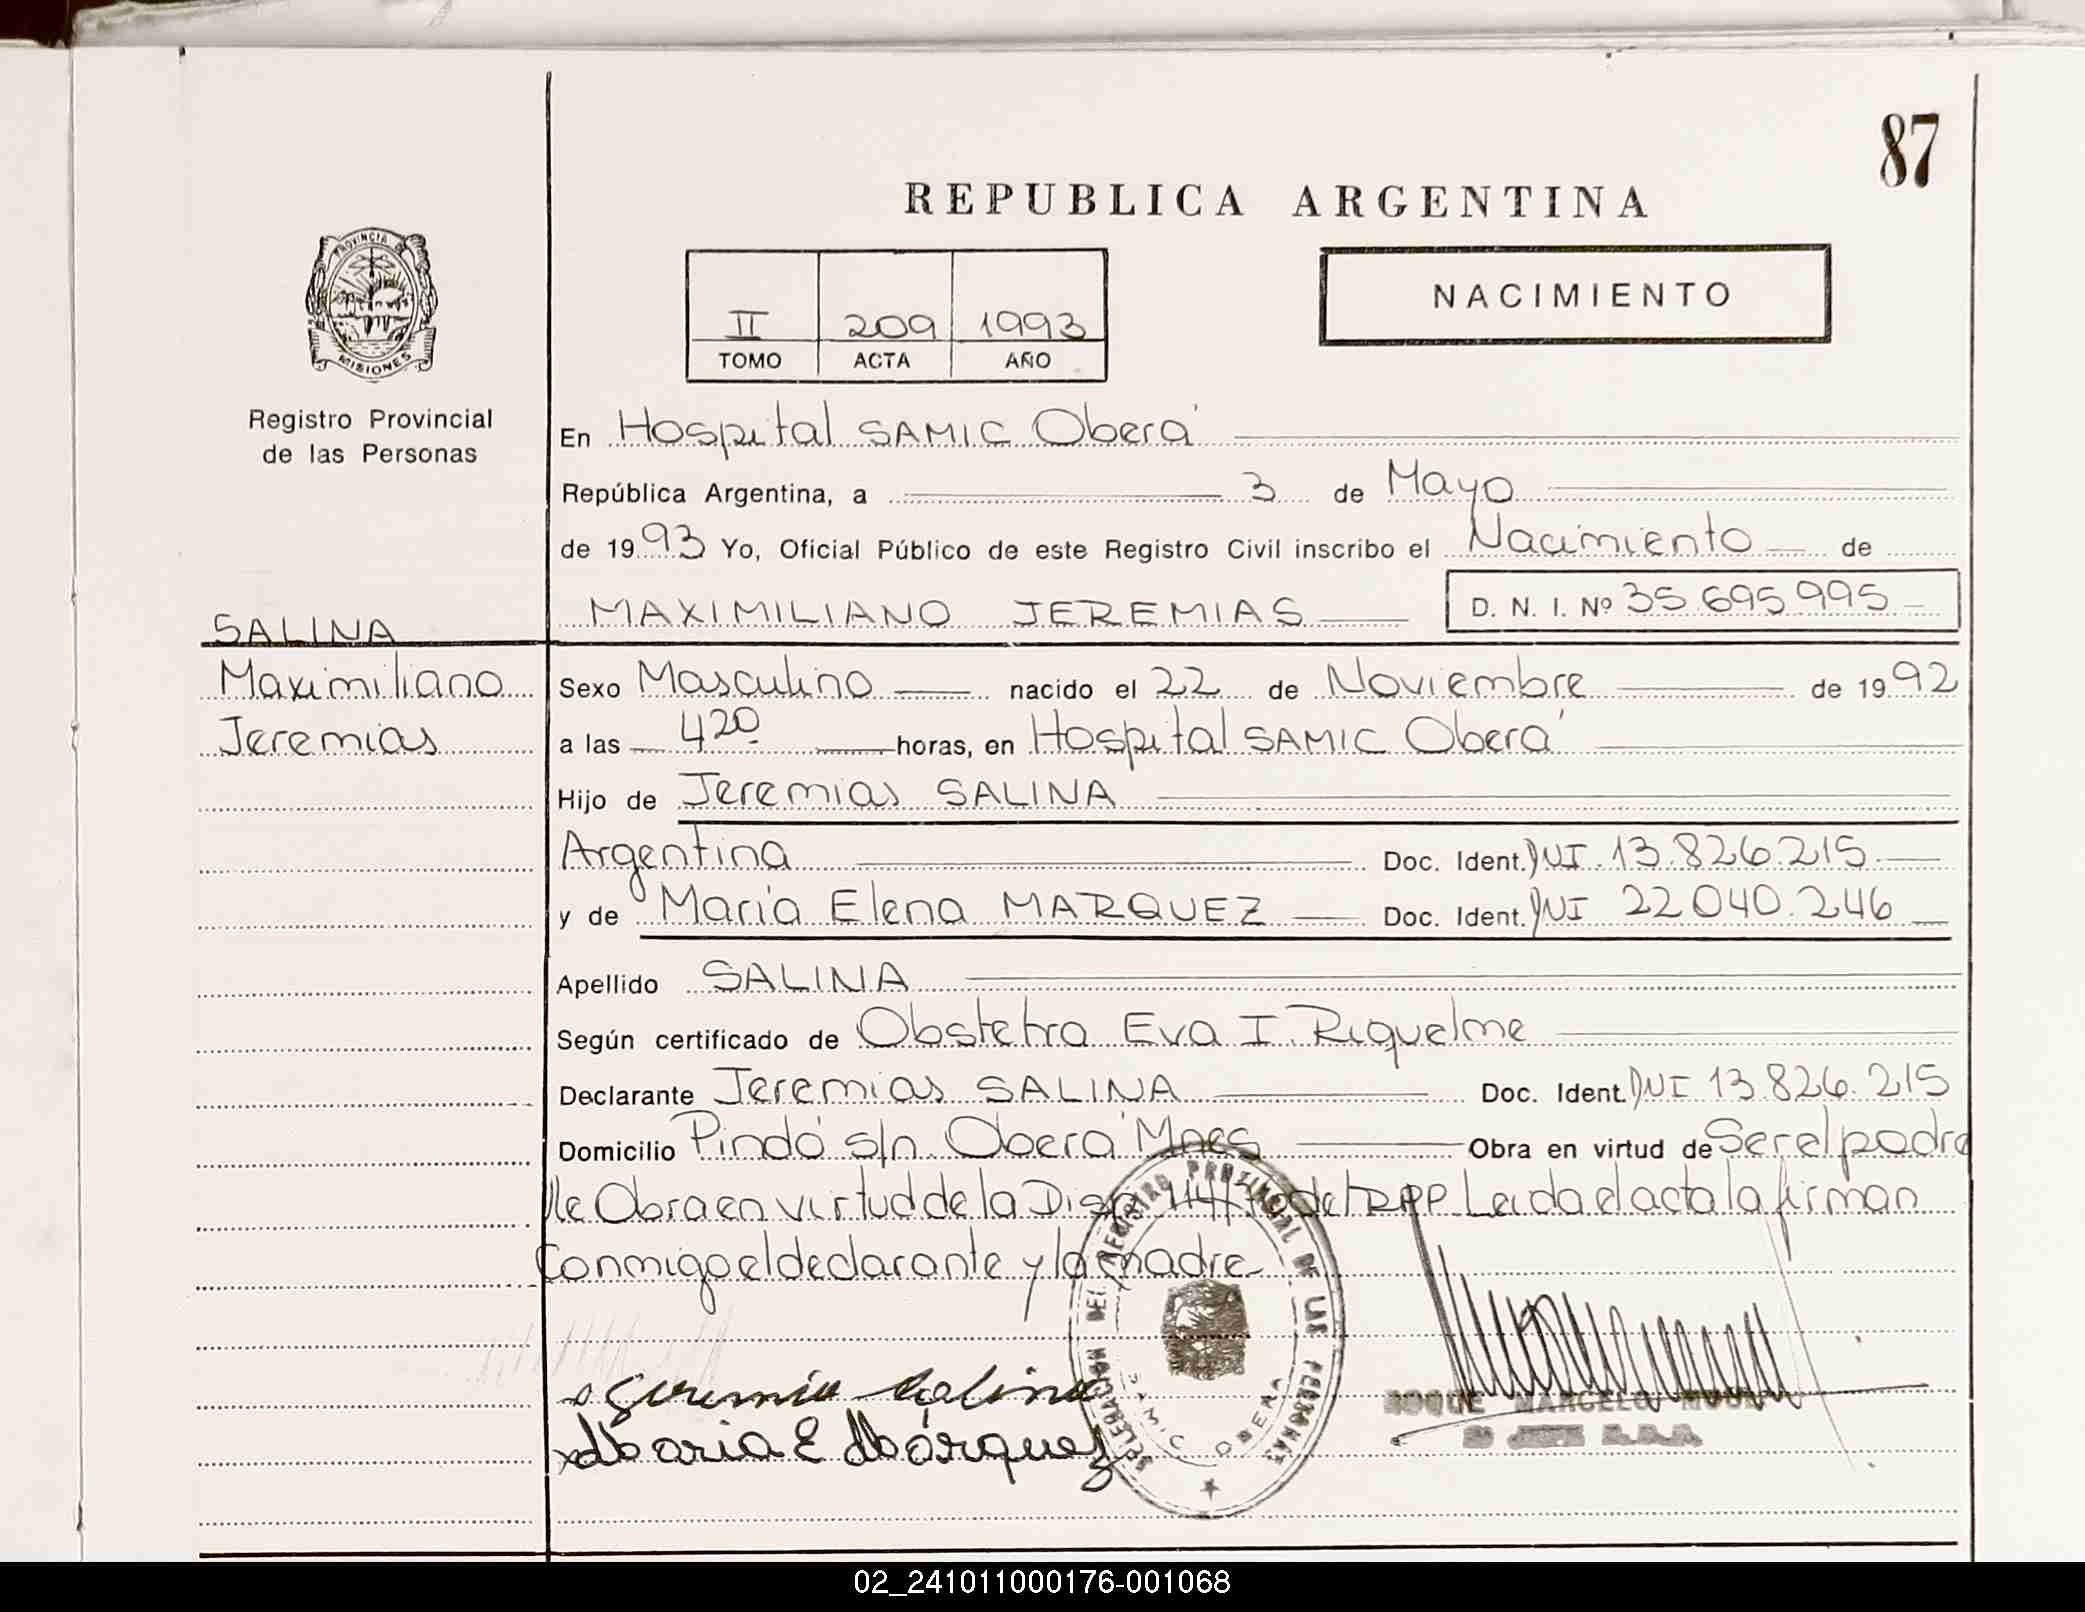 87
REPUBLICA ARGENTINA
PROVINCIA DE
MISIONES
Registro Provincial
de las Personas
II 209 1993
TOMO ACTA AÑO
NACIMIENTO
En Hospital SAMIC Oberá
República Argentina, a 3 de Mayo
de 1993 Yo, Oficial Público de este Registro Civil inscribo el Nacimiento de
MAXIMILIANO JEREMIAS D. N. I. Nº 35 695 995
SALINA
Maximiliano
Jeremias
Sexo Masculino nacido el 22 de Noviembre de 1992
a las 4 20 horas, en Hospital SAMIC Oberá
Hijo de Jeremias SALINA
Argentina Doc. Ident. DNI. 13.826.215
y de María Elena MARQUEZ Doc. Ident. DNI 22 040.246
Apellido SALINA
Según certificado de Obstetra Eva I. Riquelme
Declarante Jeremias SALINA Doc. Ident. DNI 13.826.215
Domicilio Pindó s/n. Oberá Mnes Obra en virtud de Ser el padre
Obra en virtud de la Disp. del RPP Leida el acta la firman
conmigo el declarante y la madre
Jeremia Salina
Maria E Márquez
DELEGACION DEL REGISTRO PROVINCIAL DE LAS PERSONAS
SAMIC OBERA
ROQUE MARCELO
02_241011000176-001068